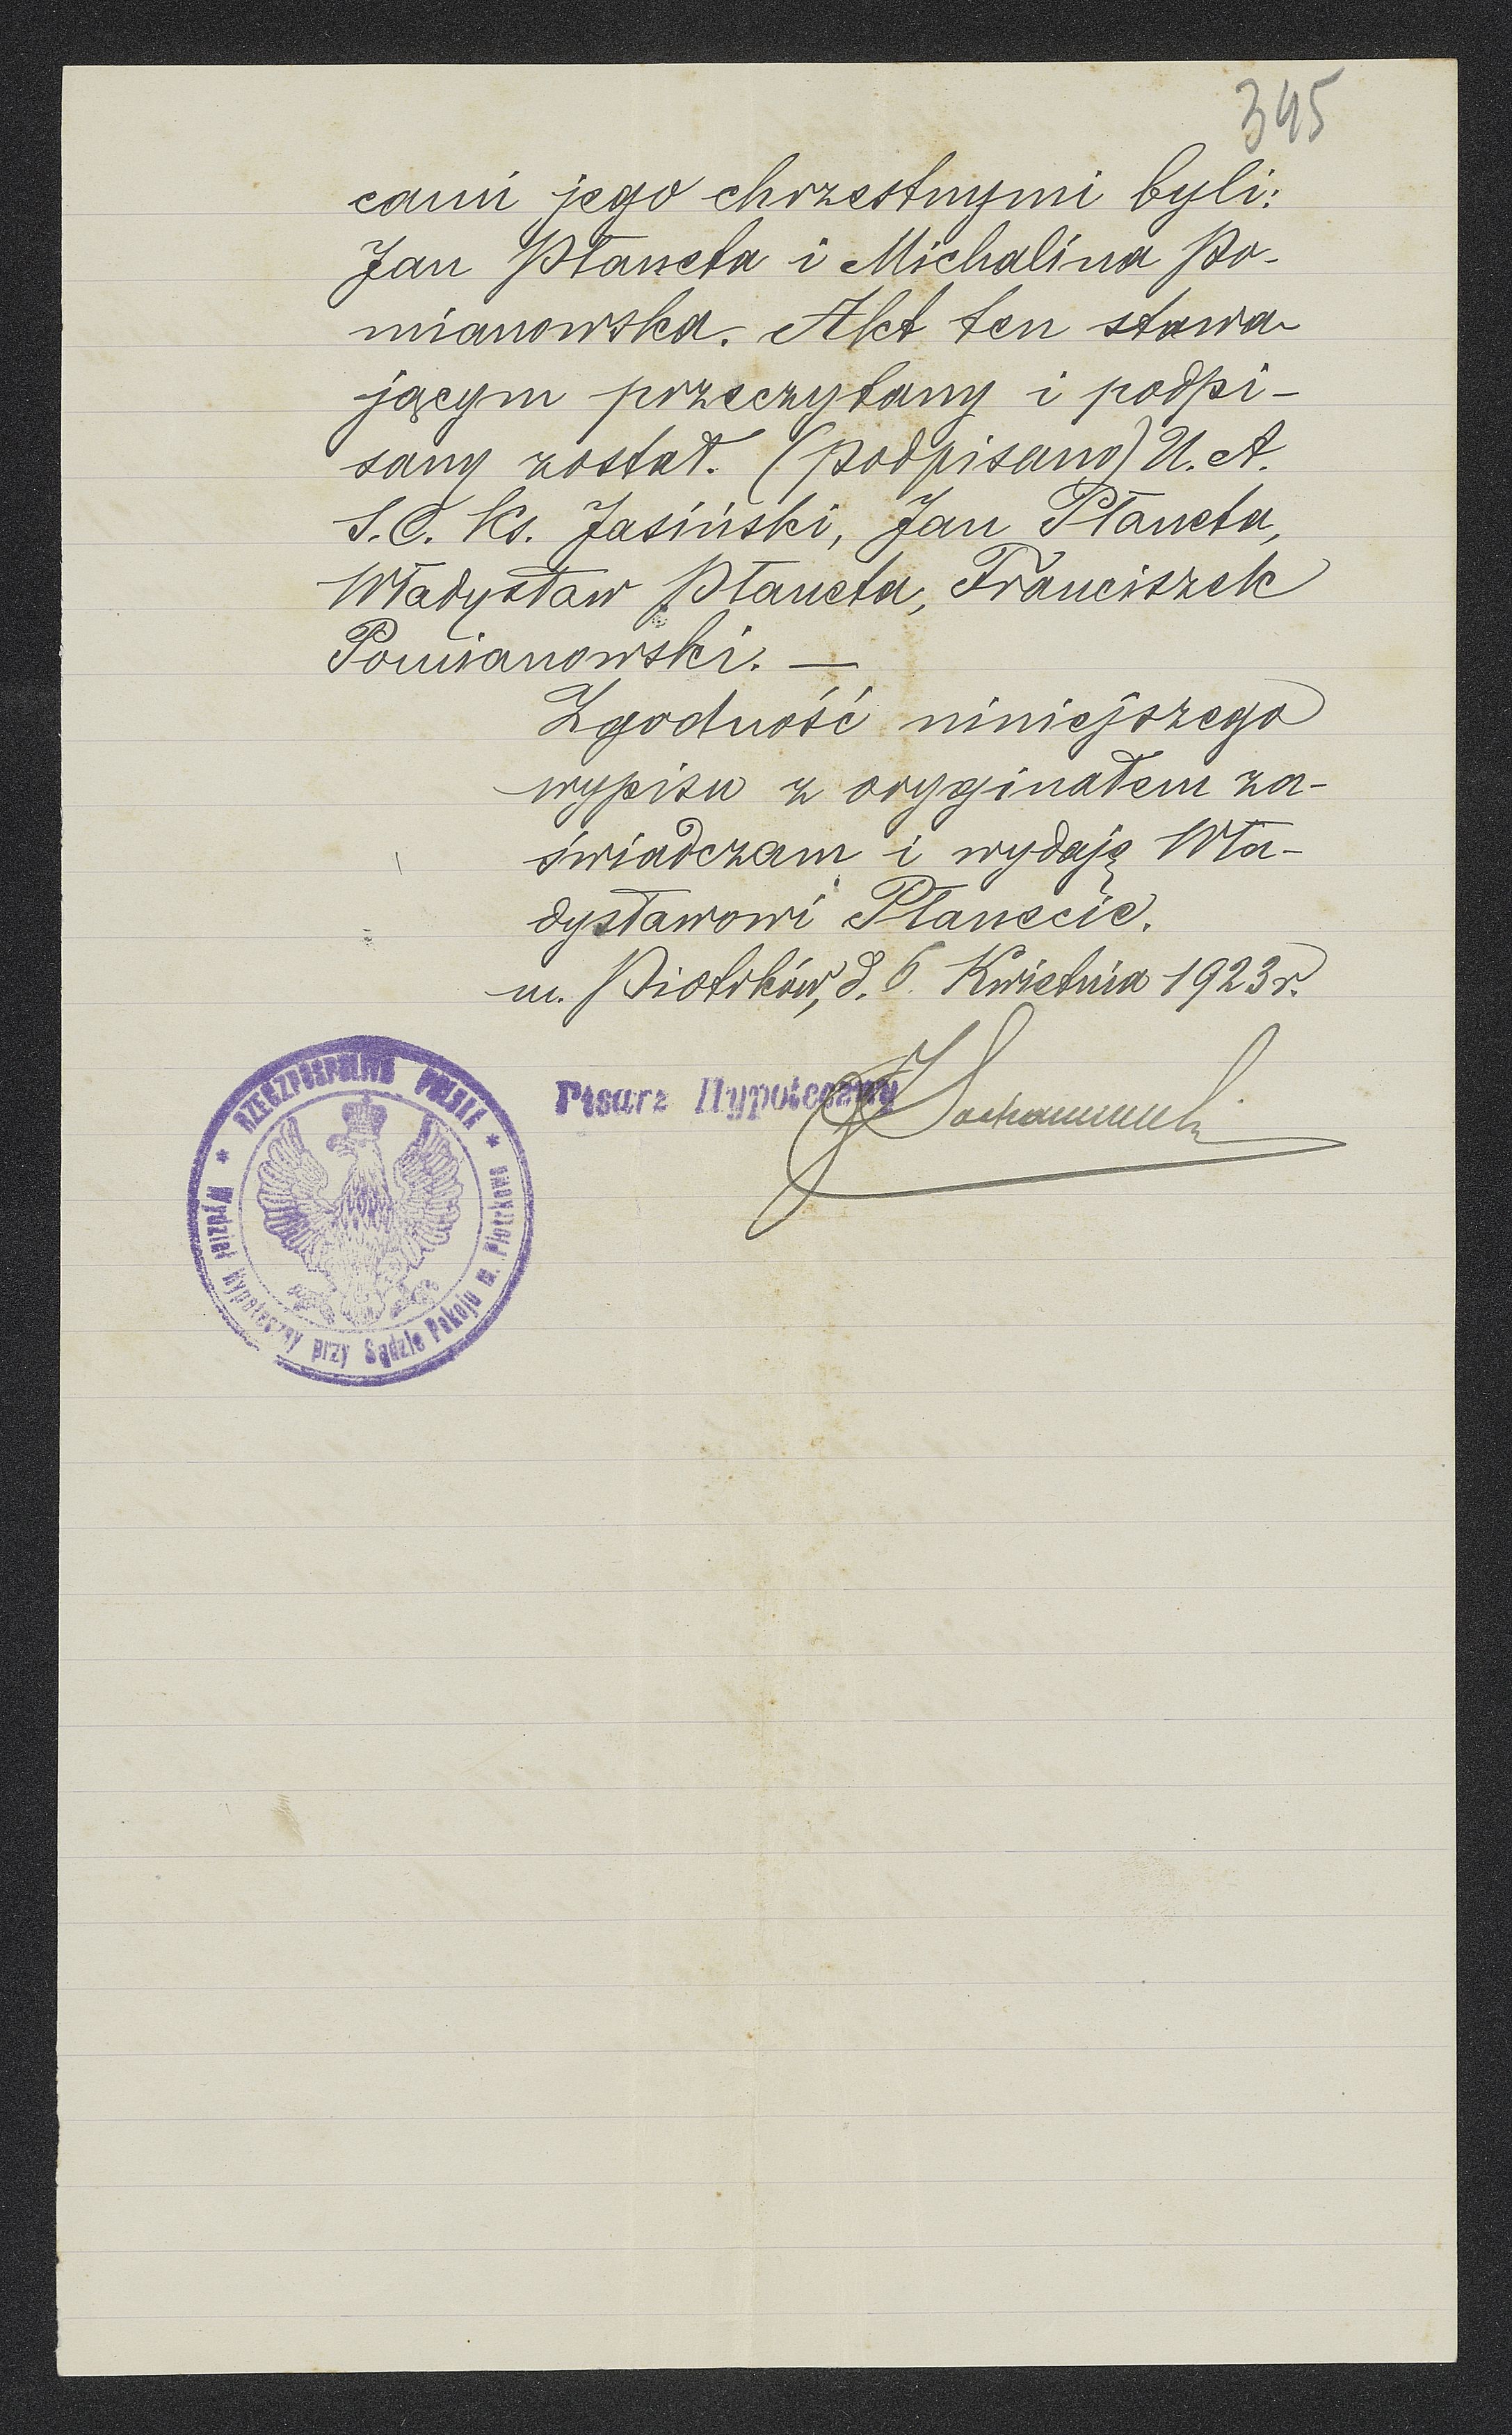 345
cami jego chrzestnymi byli:
Jan Płaneta i Michalina Po-
mianowska. Akt ten stawa-
jącym przeczytany i podpi-
sany został. (podpisano) U. A.
S. C. Ks. Jasiński, Jan Płaneta,
Władysław Płaneta, Franciszek
Pomianowski. —
Zgodność niniejszego
wypisu z oryginałem za-
świadczam i wydaję Wła-
dysławowi Płanecie.
m. Piotrków, d. 6. Kwietnia 1923 r.
Pisarz Hypoteczny
* RZECZPOSPOLITA POLSKA *
Wydział Hypoteczny przy Sądzie Pokoju m. Piotrkowa